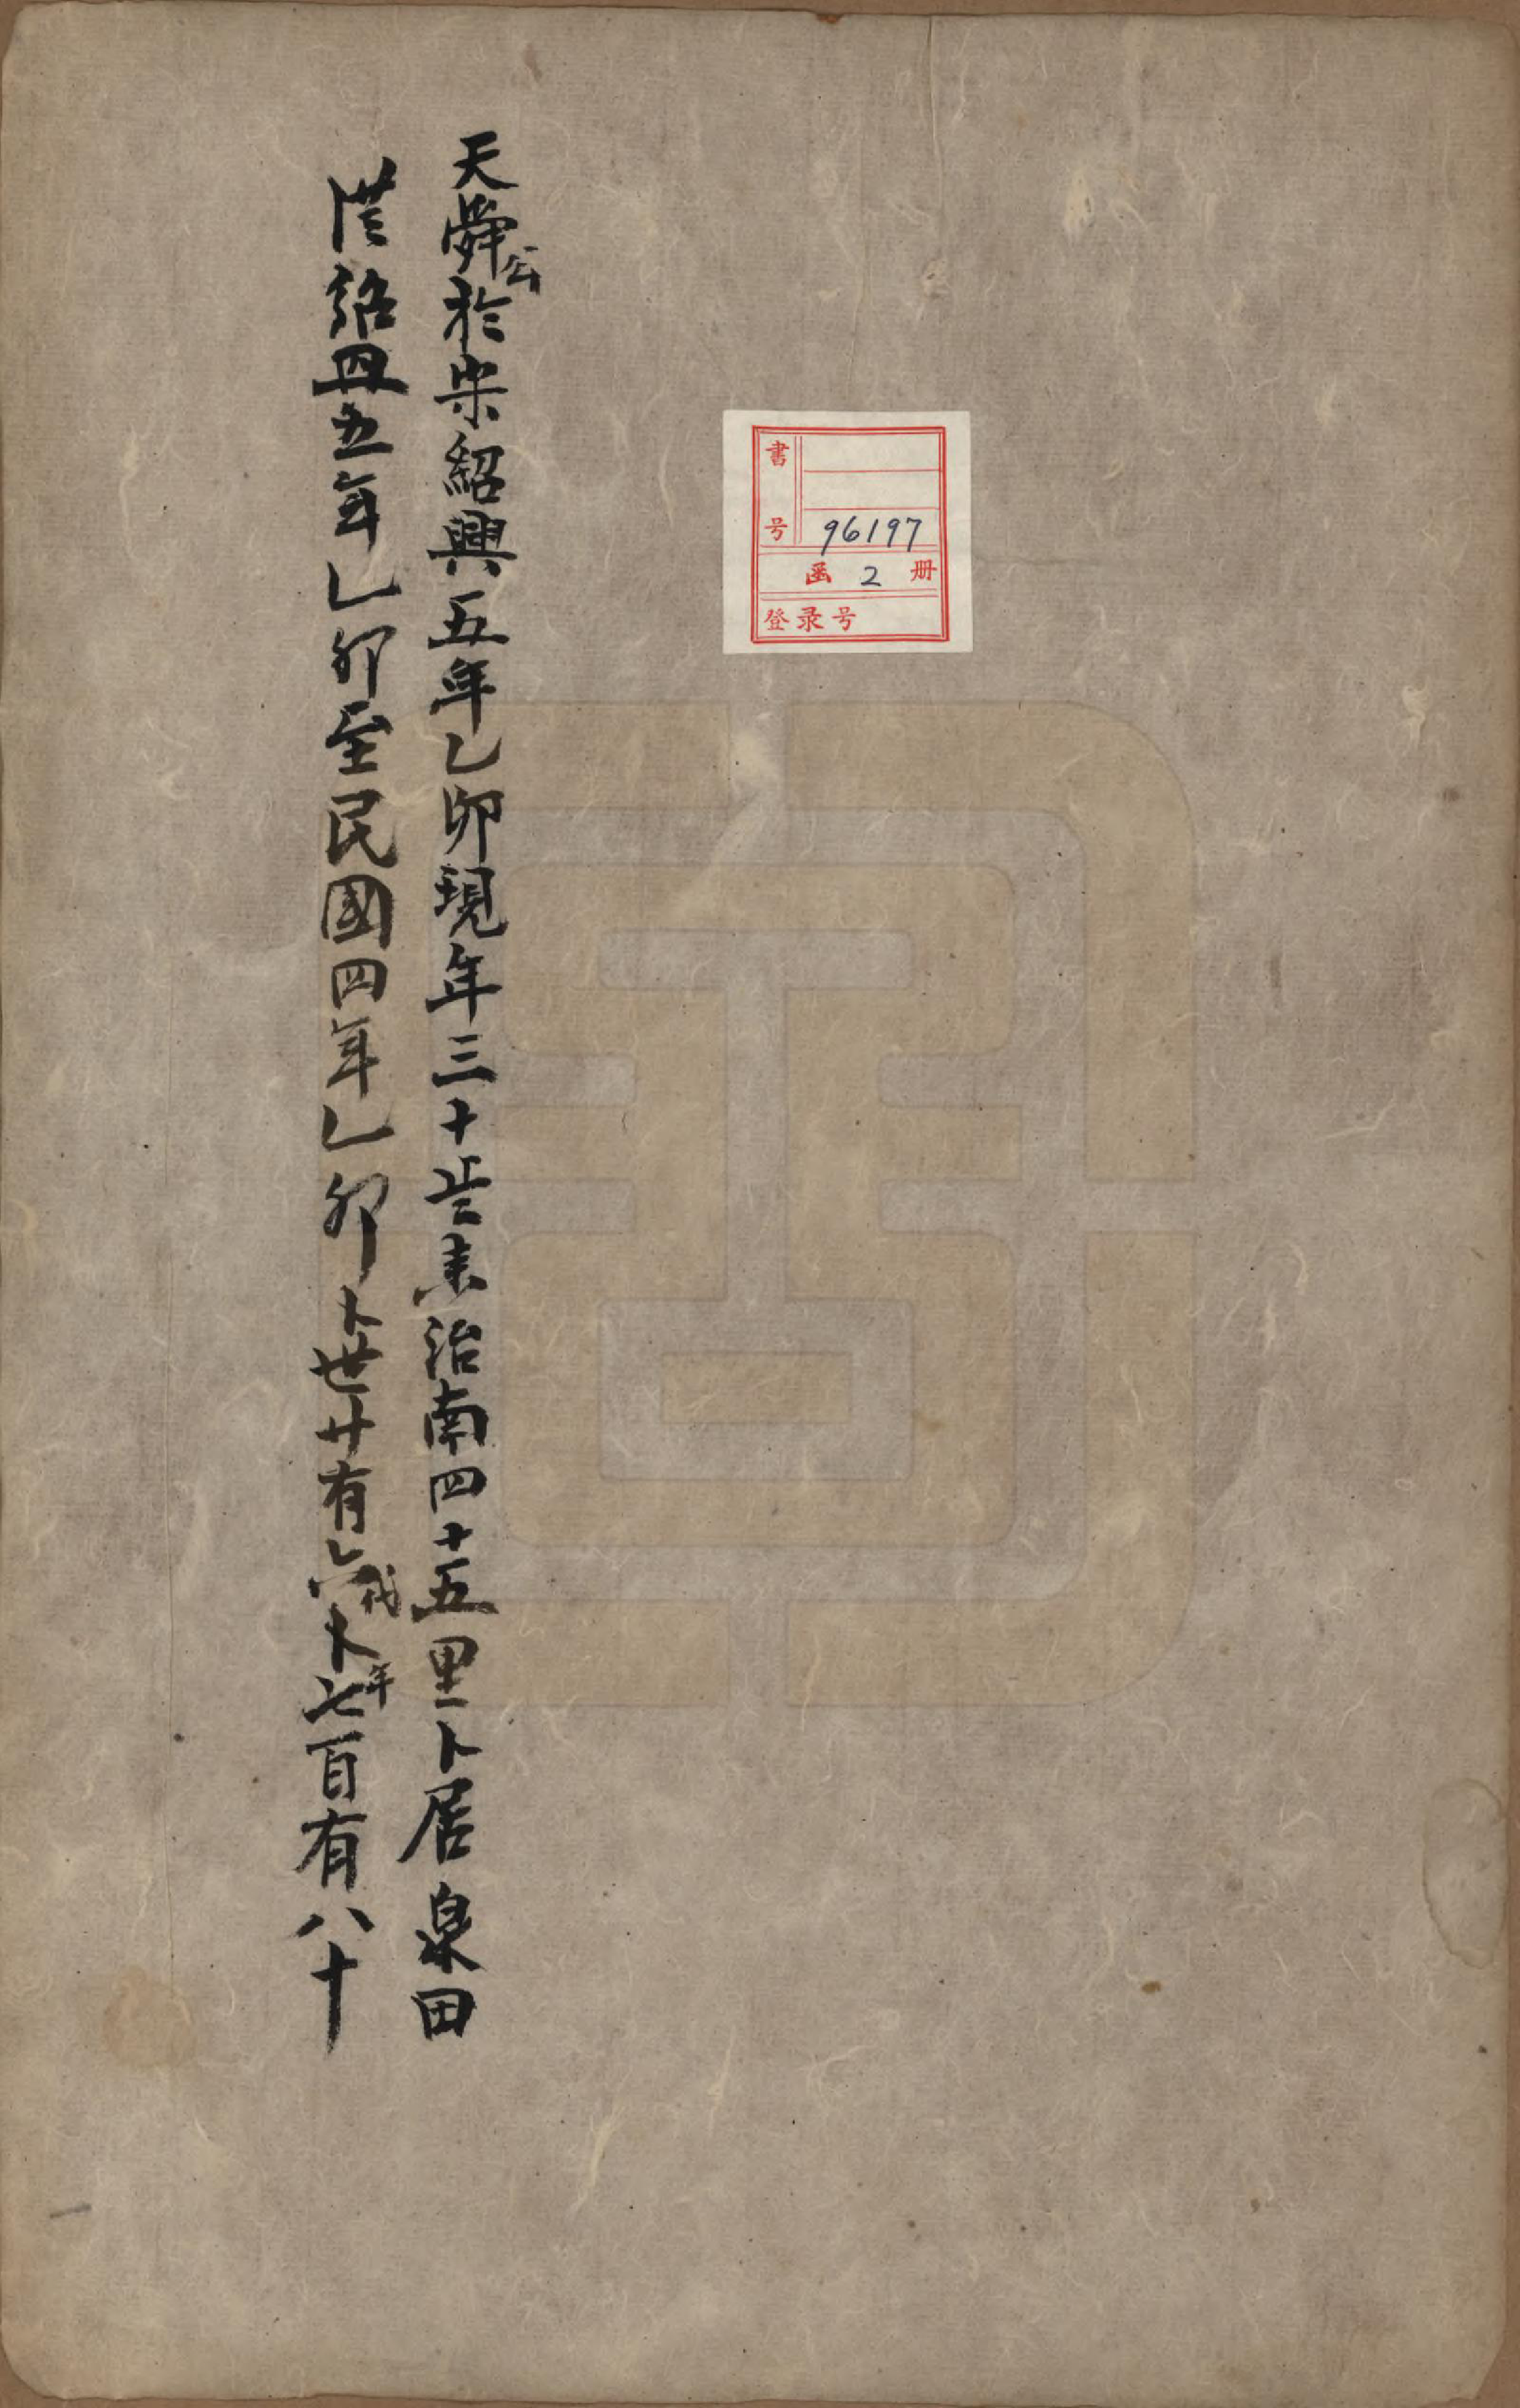 書号 96197
函 2 册
登录号
天舜公於宋紹興五年乙卯現年三十
治南四十五里卜居泉田
從紹興五年乙卯至民國四年乙卯卜世廿有六代卜年七百有八十